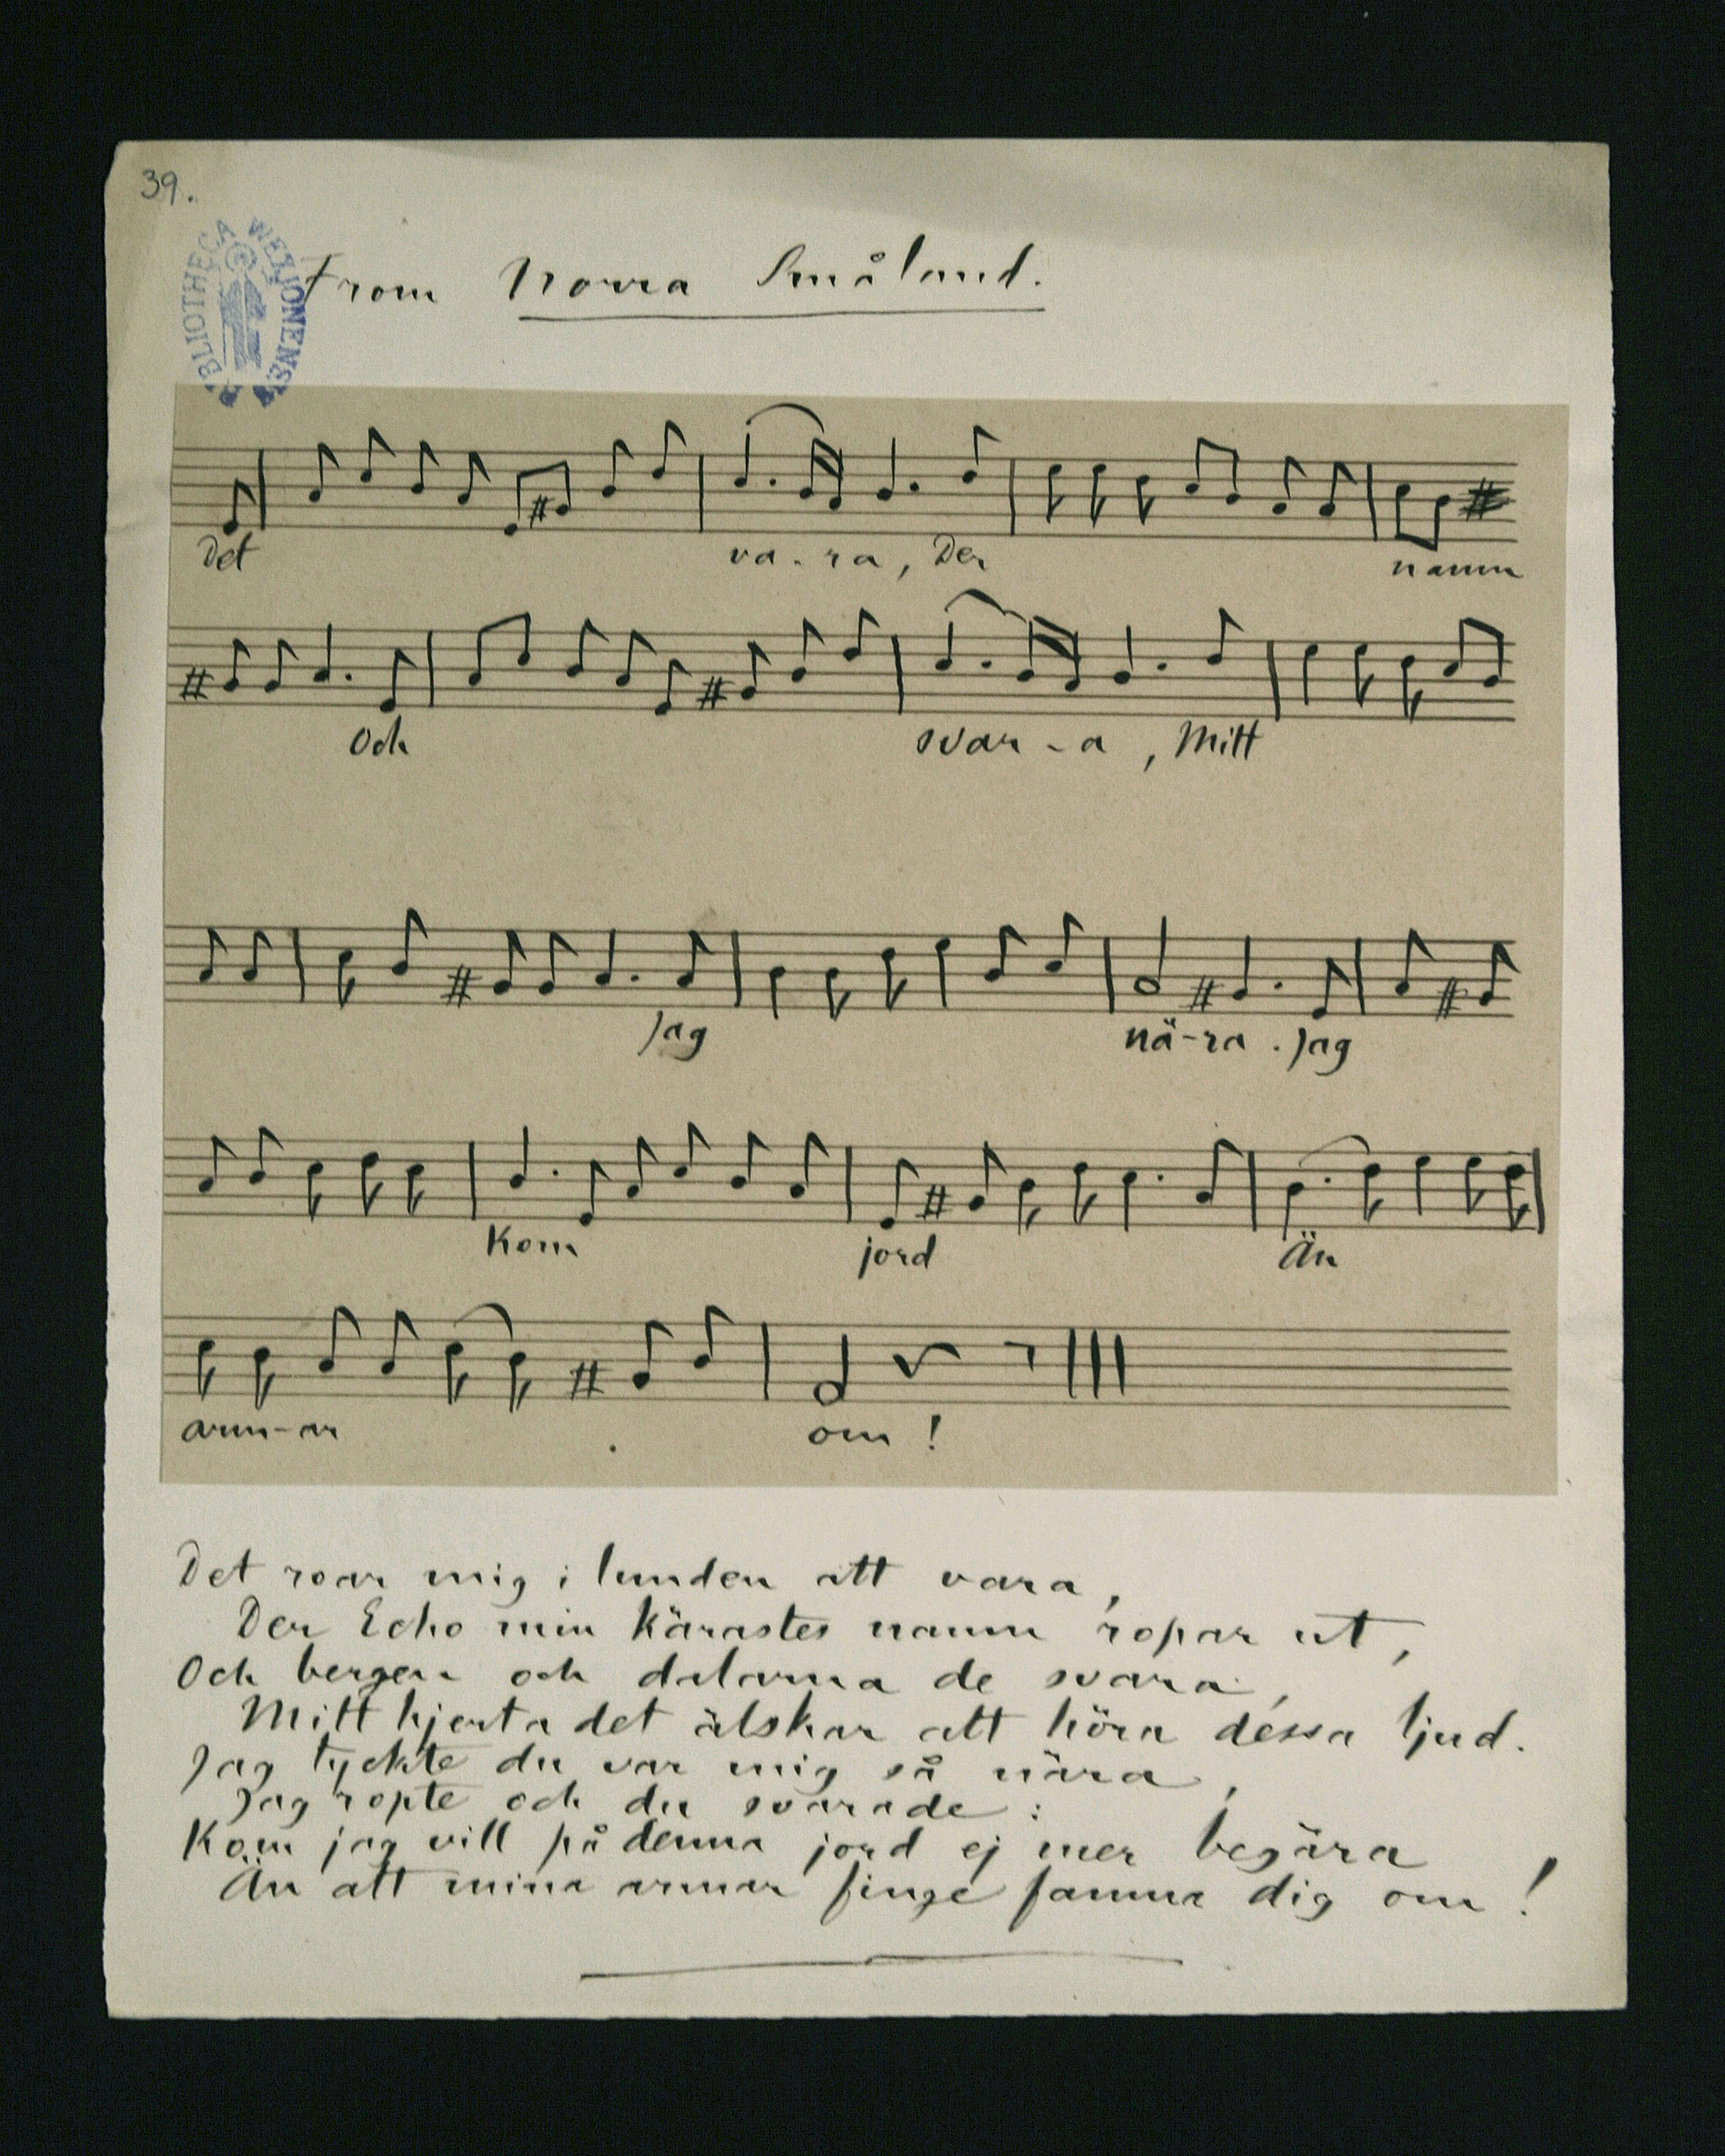 39.
BIBLIOTHECA WEXIONENSI
From Norra Småland.
Det va-ra, Der namn
Och svar-a, Mitt
Jag nä-ra. Jag
Kom jord Än
arm-ar om!
Det roar mig i lunden att vara,
Der Echo min kärastes namn ropar ut,
Och bergen och dalarna de svara,
Mitt hjerta det älskar att höra dessa ljud.
Jag tyckte du var mig så nära,
Jag ropte och du svarade:
Kom jag vill på denna jord ej mer begära
Än att mina armar finge famna dig om!